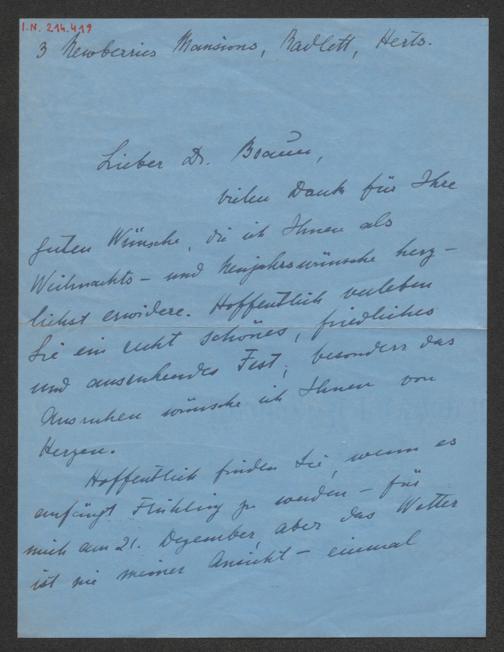 I.N. 214.419
3 Newberries Mansions, Radlett, Herts.
Lieber Dr. Braun,
vielen Dank für Ihre
guten Wünsche, die ich Ihnen als
Weihnachts- und Neujahrswünsche herz-
lichst erwidere. Hoffentlich verleben
Sie ein recht schönes, friedliches
und ausruhendes Fest, besonders das
Ausruhen wünsche ich Ihnen von
Herzen.
Hoffentlich finden Sie, wenn es
anfängt Frühling zu werden - für
mich am 21. Dezember, aber das Wetter
ist nie meiner Ansicht - einmal